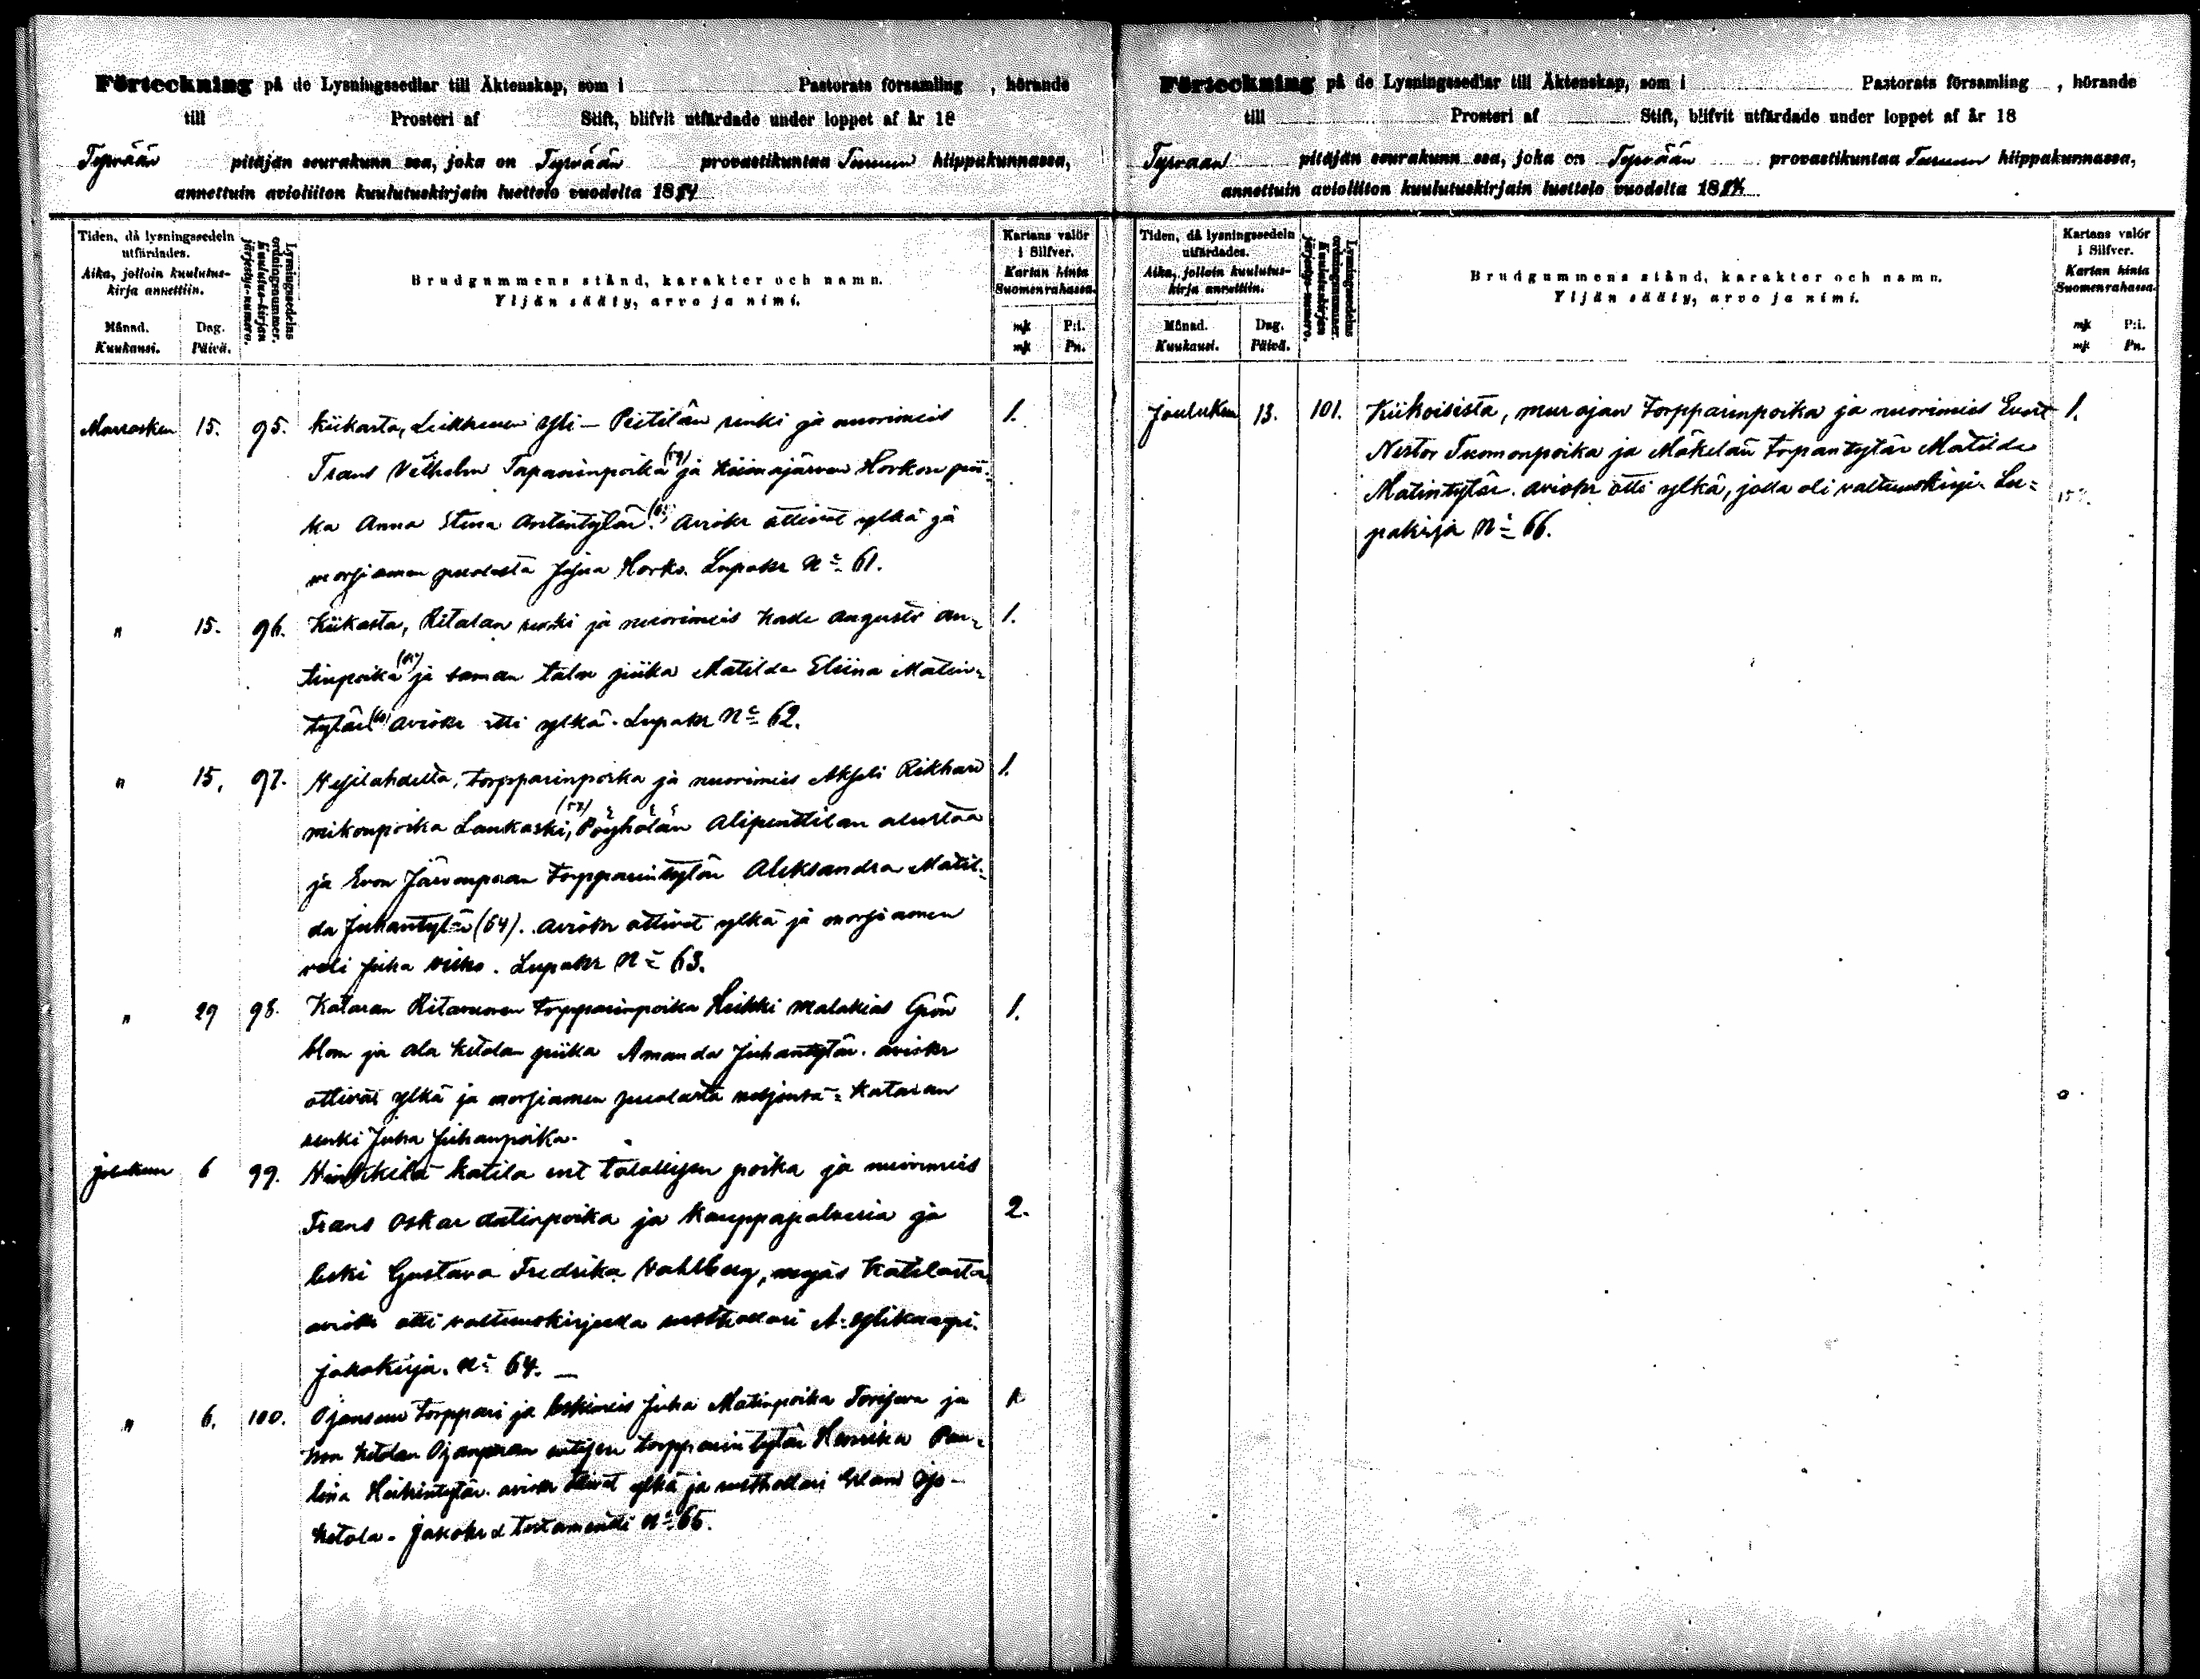 Förteckning på de Lysningssedlar till Äktenskap, som i Pastorats församling , hörande
till Prosteri af Stift, blifvit utfärdade under loppet af år 18
Tyrvään pitäjän seurakunn ssa, joka on Tyrvään provastikuntaa Turuun hiippakunnassa,
annettuin avioliiton kuulutuskirjain luettelo vuodelta 1884
Tiden, då lysningssedeln utfärdades.
Aika, jolloin kuulutus-kirja annettiin.
Månad. Dag.
Kuukausi. Päivä.
Lysningssedelns ordningsnummer.
Kuulutus-kirjan järjestys-numero.
Brudgummens stånd, karakter och namn.
Yljän sääty, arvo ja nimi.
Kartans valör i Silfver.
Kartan hinta Suomenrahassa.
mk P:i.
mk Pn.
Marrasken 15. 95. Kiikasta, yli- renki ja nuorimeis 1.
Frans Vilhelm Taparinpoika (59) ja Kiimajärven Horkon pii-
ka Anna Stina Antintytär. Aviokr ottivat ylkä ja
morsiamen puolesta Juha Horko. Lupakr No 61.
" 15. 96. Kiikasta, Ritalan renki ja nuorimeis Kade August an- 1.
tinpoika ja saman talon piika Matilda Eliina Matin-
tytär aviokr otti ylkä. Lupakr No 62.
" 15. 97. Vesilahdelta, torpparinpoika ja nuorimeis Akseli Rikhard 1.
mikonpoika Laukaski, (57) Pöyhölän Alipenttilan alustaa
ja Evon Järvenpään torpparintytär Aleksandra Matil-
da Juhantytär (64). aviokr ottivat ylkä ja morsiamen
veli Juha . Lupakr No 63.
" 29 98. Kataran Ritavuoren torpparinpoika Heikki Malakias Grön 1.
blom ja ala Ketolan piika Amanda Juhantytär. aviokr
ottivat ylkä ja morsiamen puolasta Kataran
renki Juha Juhanpoika.
jouluken 6 99. Katila ent talollisen poika ja nuorimeis
Frans Oskar Antinpoika ja kauppapalveria ja 2.
leski Gustava Fredrika Vahlberg, myös Katilasta
aviokr otti valtuuskirjalla rusthollari A. Ylikaapi.
jakokirja. No 64.
" 6. 100. Ojansuu torppari ja leskimeis Juha Matinpoika ja 1.
Ketolan Ojanperan entisen torpparin tytär Henrika Pau-
lina Heikintytär. aviokr ottivat ylkä ja rusthollari Erland Ojo-
ketola. jakokr & testamentti No 65.
Förteckning på de Lysningssedlar till Äktenskap, som i Pastorats församling , hörande
till Prosteri af Stift, blifvit utfärdade under loppet af år 18
Tyrvään pitäjän seurakunn ssa, joka on Tyrvään provastikuntaa Turuun hiippakunnassa,
annettuin avioliiton kuulutuskirjain luettelo vuodelta 1884
Tiden, då lysningssedeln utfärdades.
Aika, jolloin kuulutus-kirja annettiin.
Månad. Dag.
Kuukausi. Päivä.
Lysningssedelns ordningsnummer.
Kuulutus-kirjan järjestys-numero.
Brudgummens stånd, karakter och namn.
Yljän sääty, arvo ja nimi.
Kartans valör i Silfver.
Kartan hinta Suomenrahassa.
mk P:i.
mk Pn.
Jouluken 13. 101. Kiikoisista, murajan torpparinpoika ja nuorimies Evert 1.
Nestor Tuomonpoika ja Mäkelän torpantytär Matilda
Matintytär. aviokr otti ylkä, jolla oli valtuuskirja. Lu-
pakirja No 66.